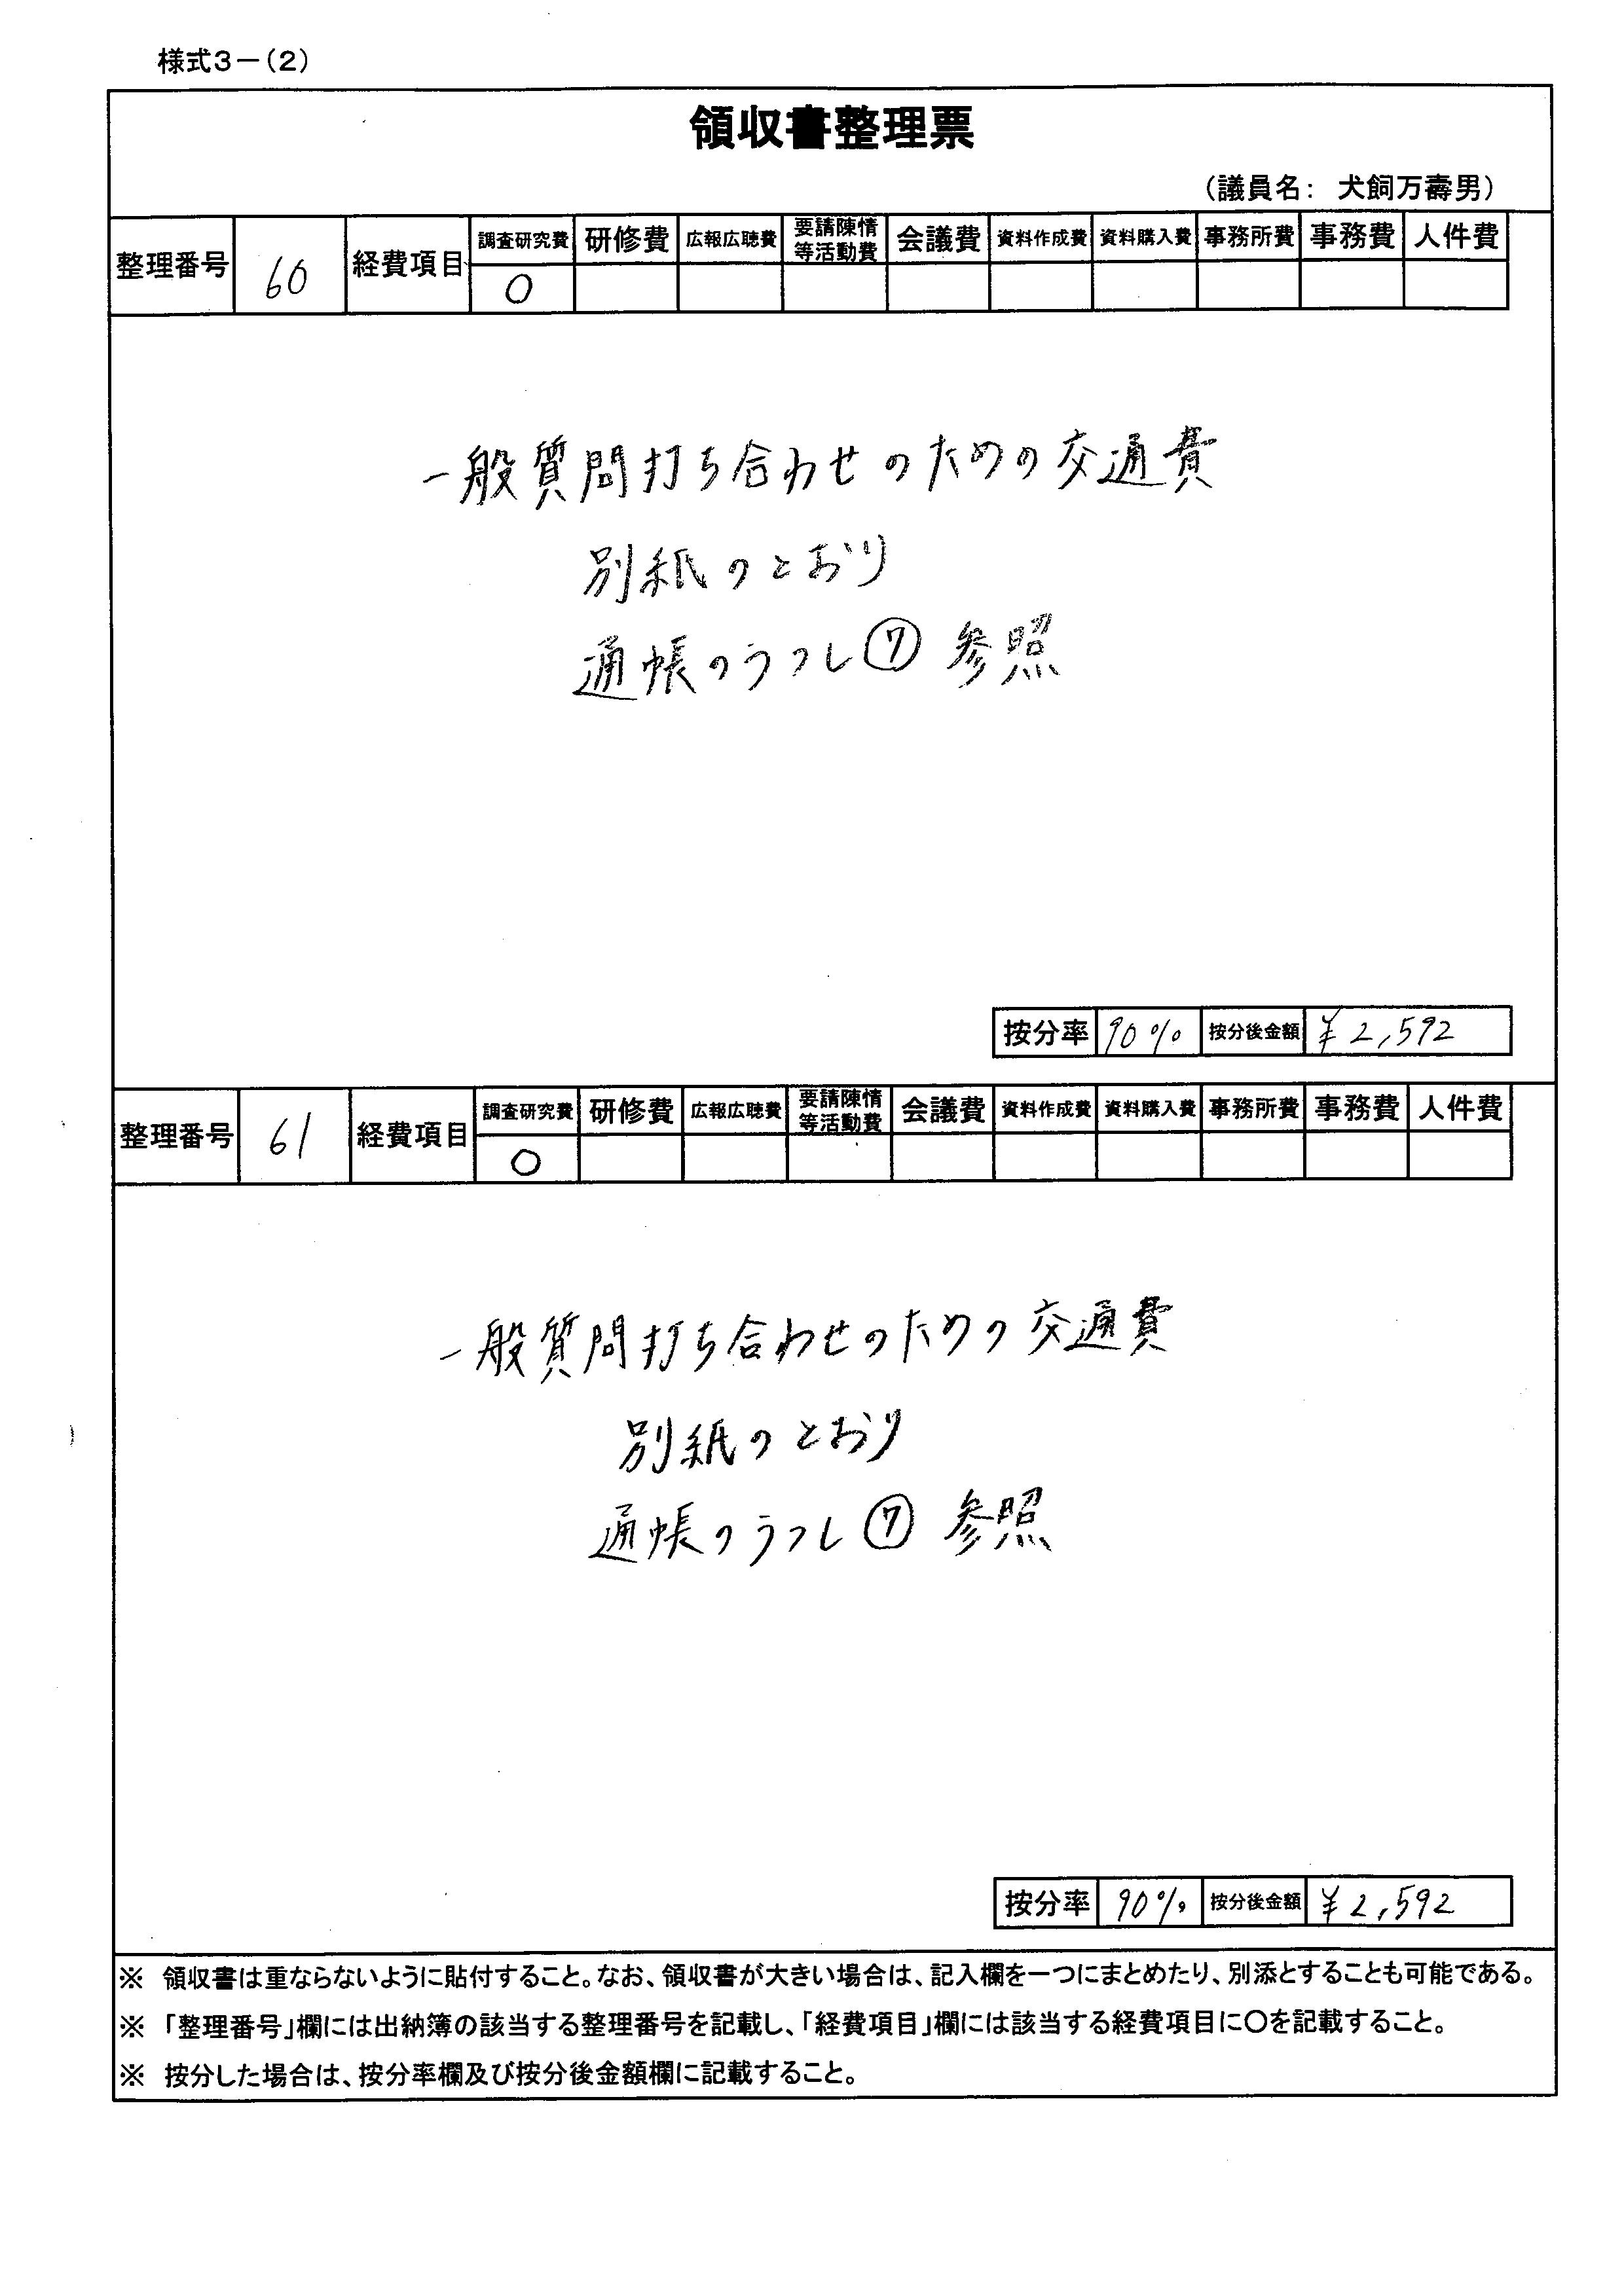 様式3-(2)
領収書整理票
(議員名: 犬飼万壽男)
整理番号 60 経費項目 調査研究費 研修費 広報広聴費 要請陳情等活動費 会議費 資料作成費 資料購入費 事務所費 事務費 人件費
○
一般質問打ち合わせのための交通費
別紙のとおり
通帳のうつし⑦ 参照
按分率 90% 按分後金額 ¥2,592
整理番号 61 経費項目 調査研究費 研修費 広報広聴費 要請陳情等活動費 会議費 資料作成費 資料購入費 事務所費 事務費 人件費
○
一般質問打ち合わせのための交通費
別紙のとおり
通帳のうつし⑦ 参照
按分率 90% 按分後金額 ¥2,592
※ 領収書は重ならないように貼付すること。なお、領収書が大きい場合は、記入欄を一つにまとめたり、別添とすることも可能である。
※ 「整理番号」欄には出納簿の該当する整理番号を記載し、「経費項目」欄には該当する経費項目に〇を記載すること。
※ 按分した場合は、按分率欄及び按分後金額欄に記載すること。